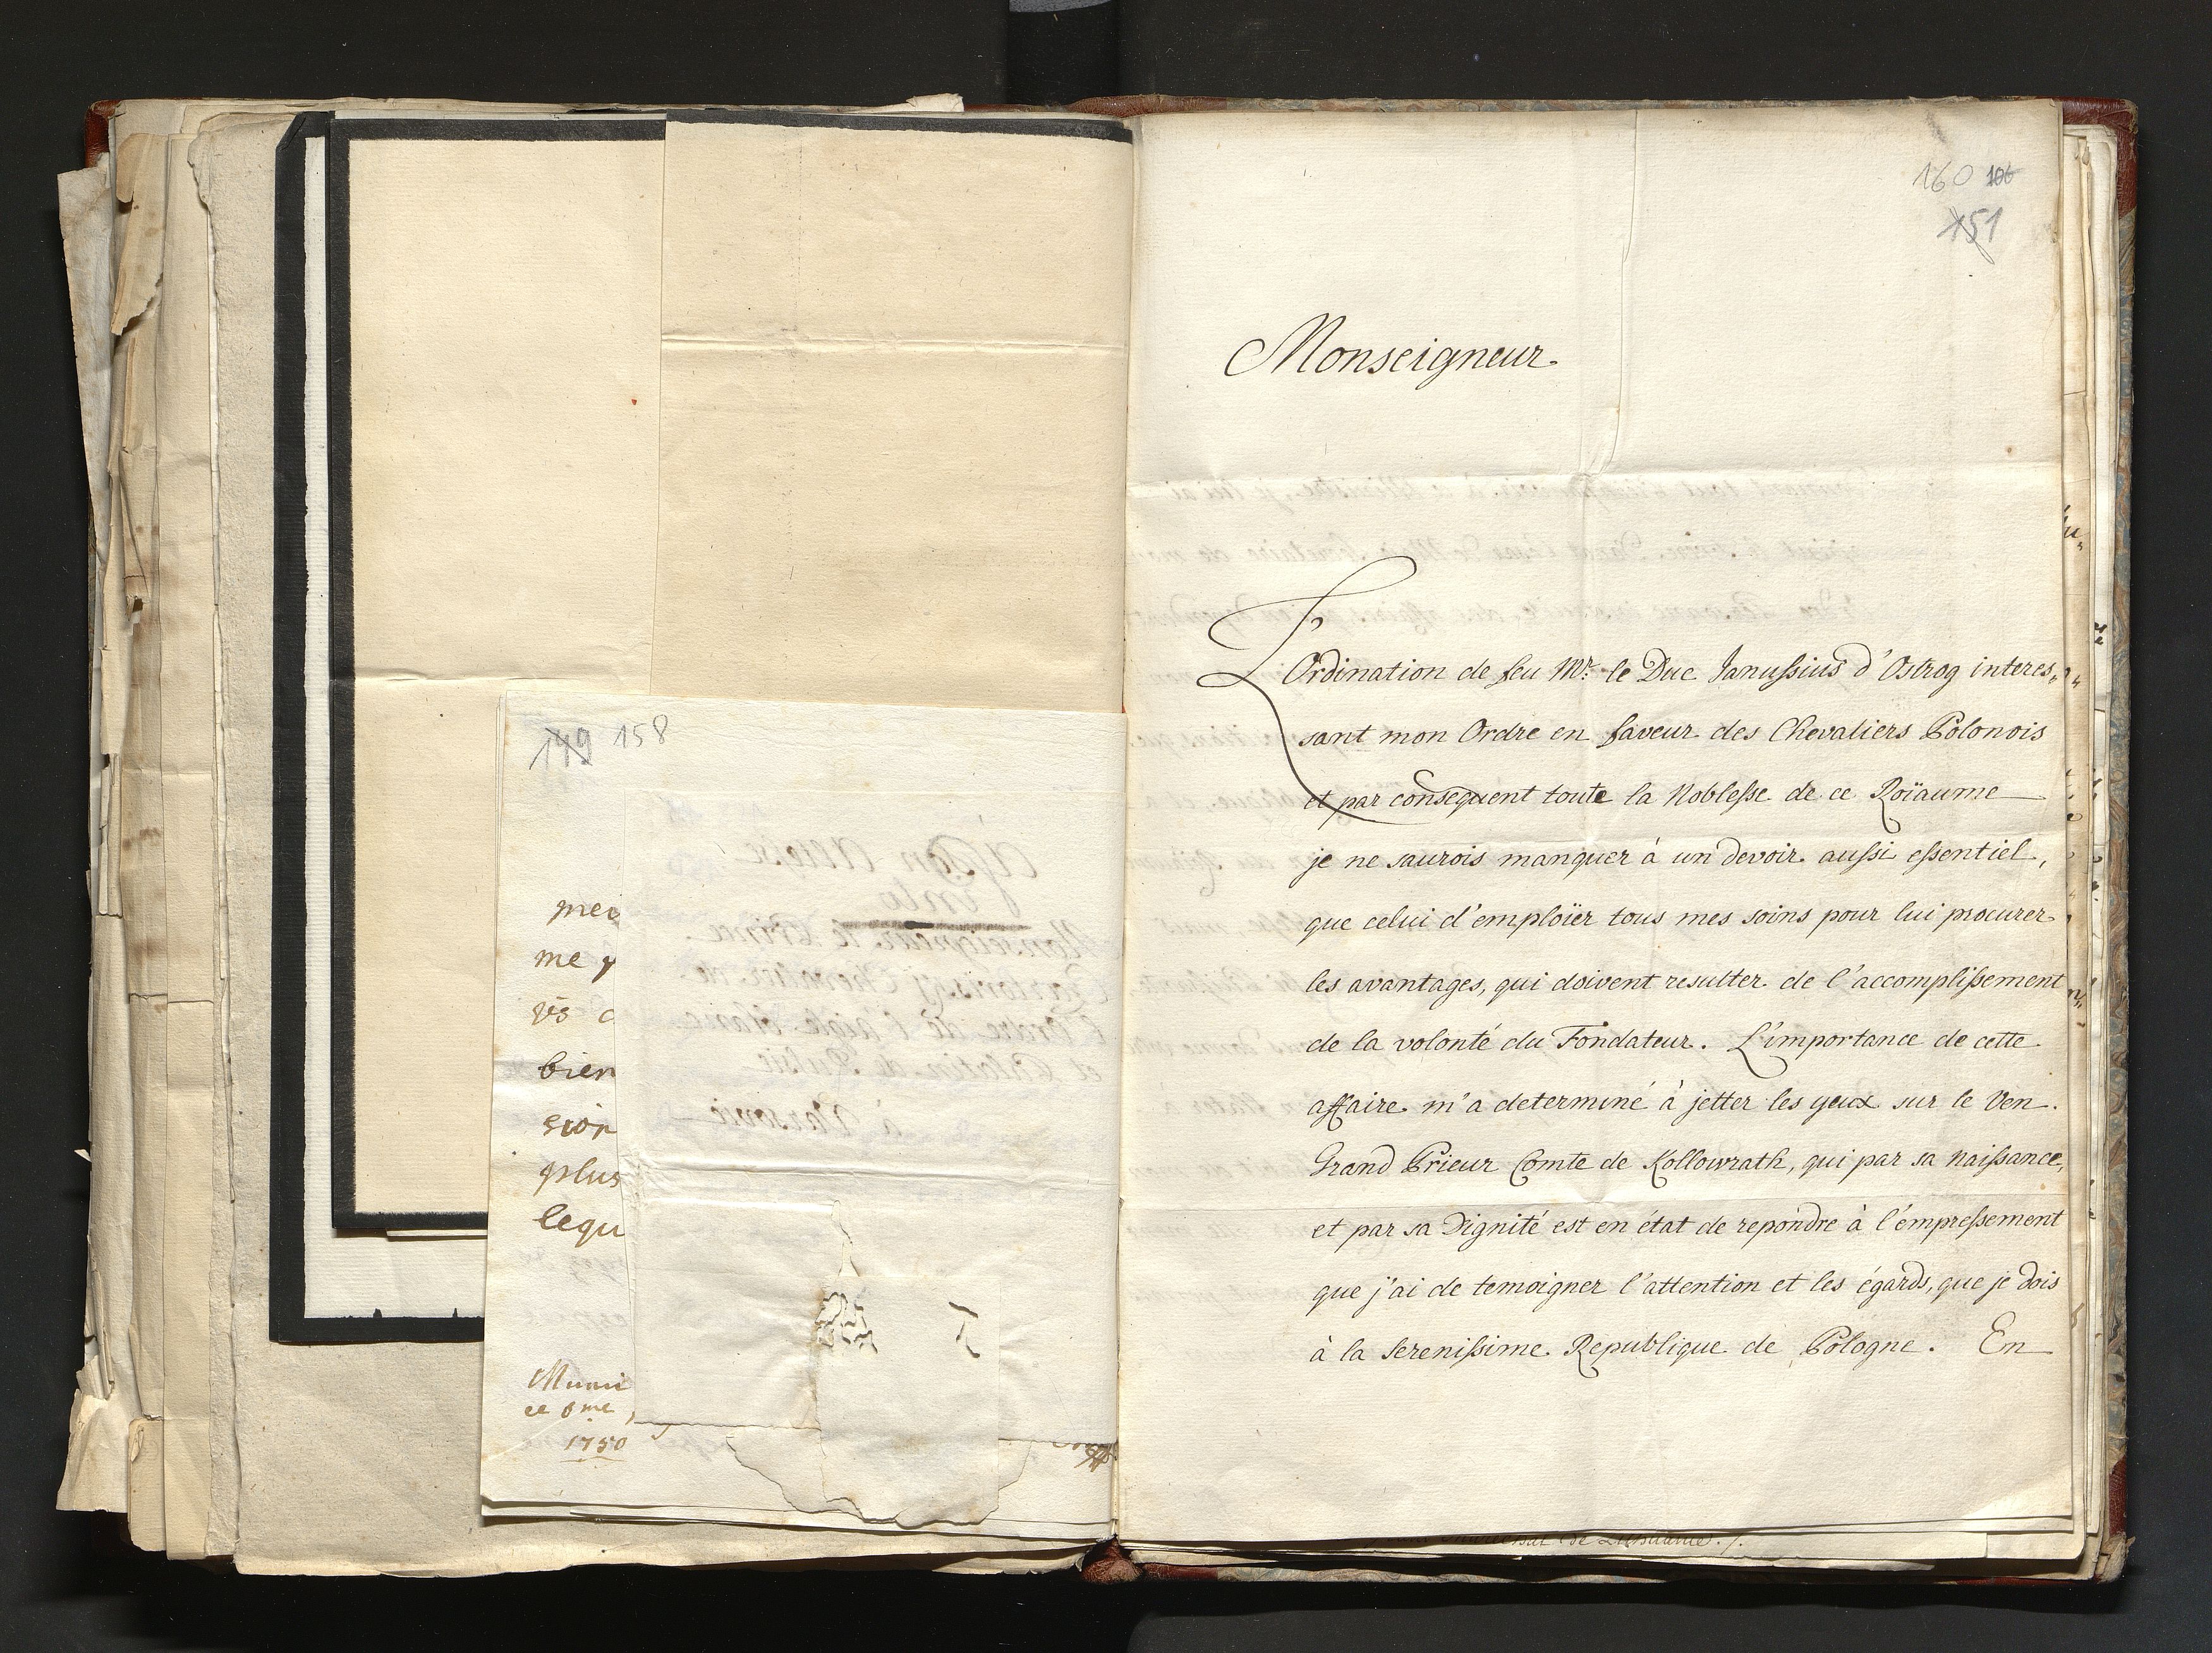 149 158
me
vs
bien
sion
plus
lequ
Muni
ce 8me
1750
160 106
151
Monseigneur
L'Ordination de feu Mr. le Duc Janussius d'Ostrog interes„
sant mon Ordre en faveur des Chevaliers Polonois
et par consequent toute la Noblesse de ce Roïaume
je ne saurois manquer à un devoir aussi essentiel,
que celui d'emploïer tous mes soins pour lui procurer
les avantages, qui doivent resulter de l'accomplissement
de la volonté du Fondateur. L'importance de cette
affaire m'a determiné à jetter les yeux sur le Ven.
Grand Prieur Comte de Kollowrath, qui par sa naissance,
et par sa Dignité est en état de repondre à l'empressement
que j'ai de temoigner l'attention et les égards, que je dois
à la Serenissime Republique de Pologne. En